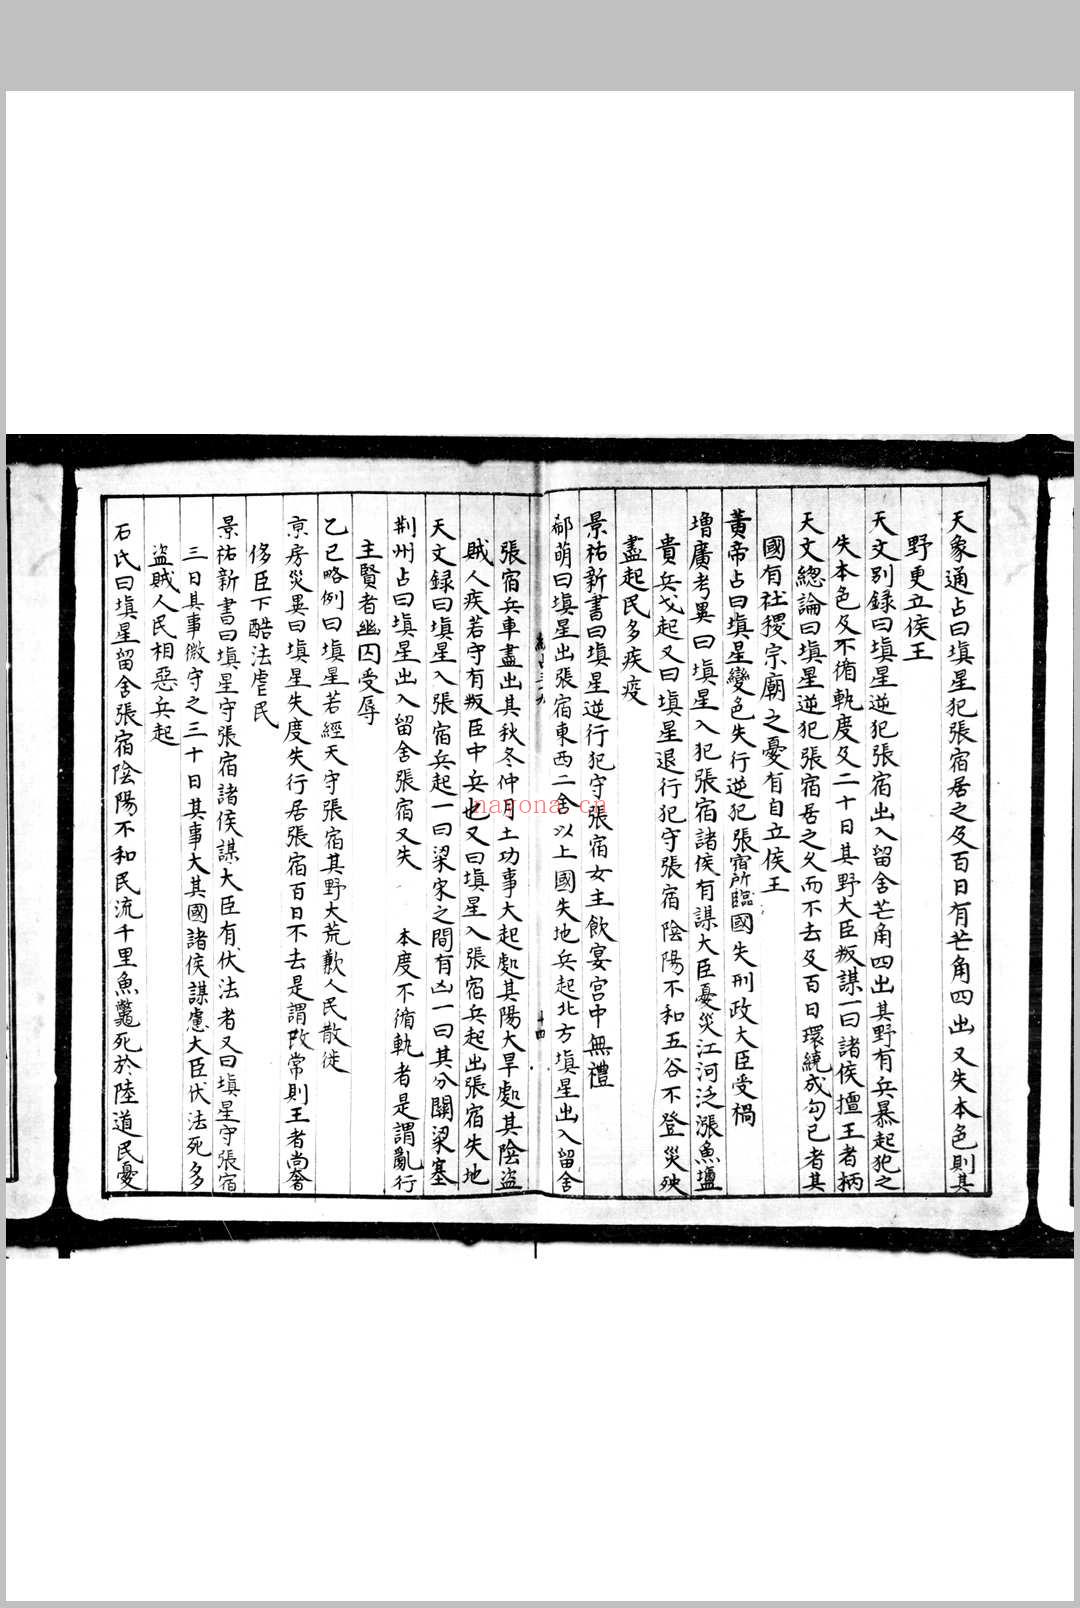 天象通占曰塡星犯張宿居之及百日有芒角四出又失本色則其
野更立侯王
天文別録曰塡星逆犯張宿出入留舍芒角四出其野有兵暴起犯之
失本色及不循軌度及二十日其野大臣叛謀一曰諸侯擅王者柄
天文緫論曰塡星逆犯張宿居之久而不去及百日環繞成勾已者其
國有社稷宗廟之憂有自立侯王
黃帝占曰塡星變色失行逆犯張宿所臨國失刑政大臣受禍
增廣考異曰塡星入犯張宿諸侯有謀大臣憂災江河泛漲魚鹽
貴兵戈起又曰塡星退行犯守張宿陰陽不和五谷不登災殃
盡起民多疾疫
景祐新書曰塡星逆行犯守張宿女主飲宴宮中無禮
郗萌曰塡星出張宿東西二舍以上國失地兵起北方塡星出入留舍
十四
張宿兵車盡出其秋冬仲月土功事大起處其陽大旱處其陰盜
賊人疾若守有叛臣中兵也又曰塡星入張宿兵起出張宿失地
天文録曰塡星入張宿兵起一曰梁宋之間有凶一曰其分關梁塞
荆州占曰塡星出入留舍張宿又失 本度不循軌者是謂亂行
主賢者幽囚受辱
乙巳略例曰塡星若經天守張宿其野大荒歉人民散徙
京房災異曰塡星失度失行居張宿百日不去是謂改常則王者尚奢
侈臣下酷法虐民
景祐新書曰塡星守張宿諸侯謀大臣有伏法者又曰塡星守張宿
三日其事微守之三十日其事大其國諸侯謀慮大臣伏法死多
盜賊人民相惡兵起
石氏曰塡星留舍張宿陰陽不和民流千里魚鼈死於陸道民憂
nayona.cn